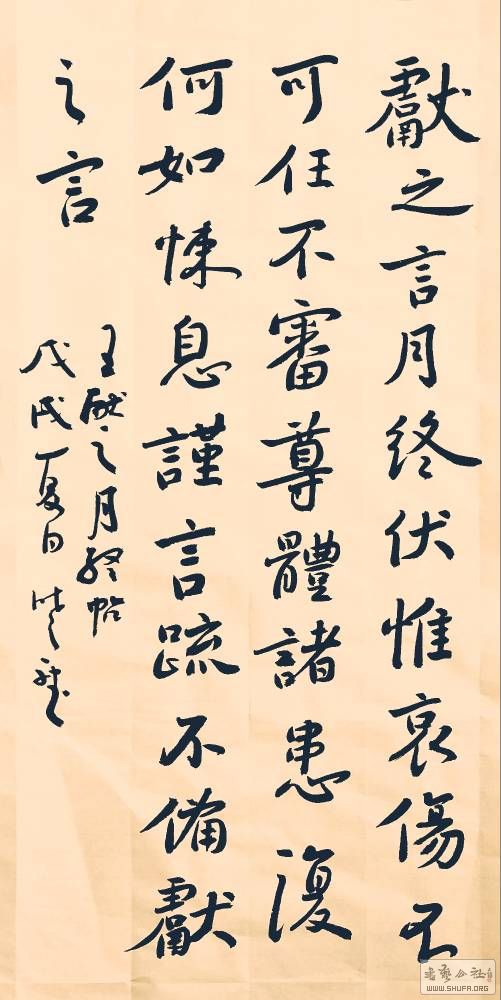 獻之言月終伏惟哀傷不
可任不審尊體諸患復
何如悚息謹言疏不備獻
之言
王献之月終帖
戊戌夏日
书艺公社
WWW.SHUFA.ORG